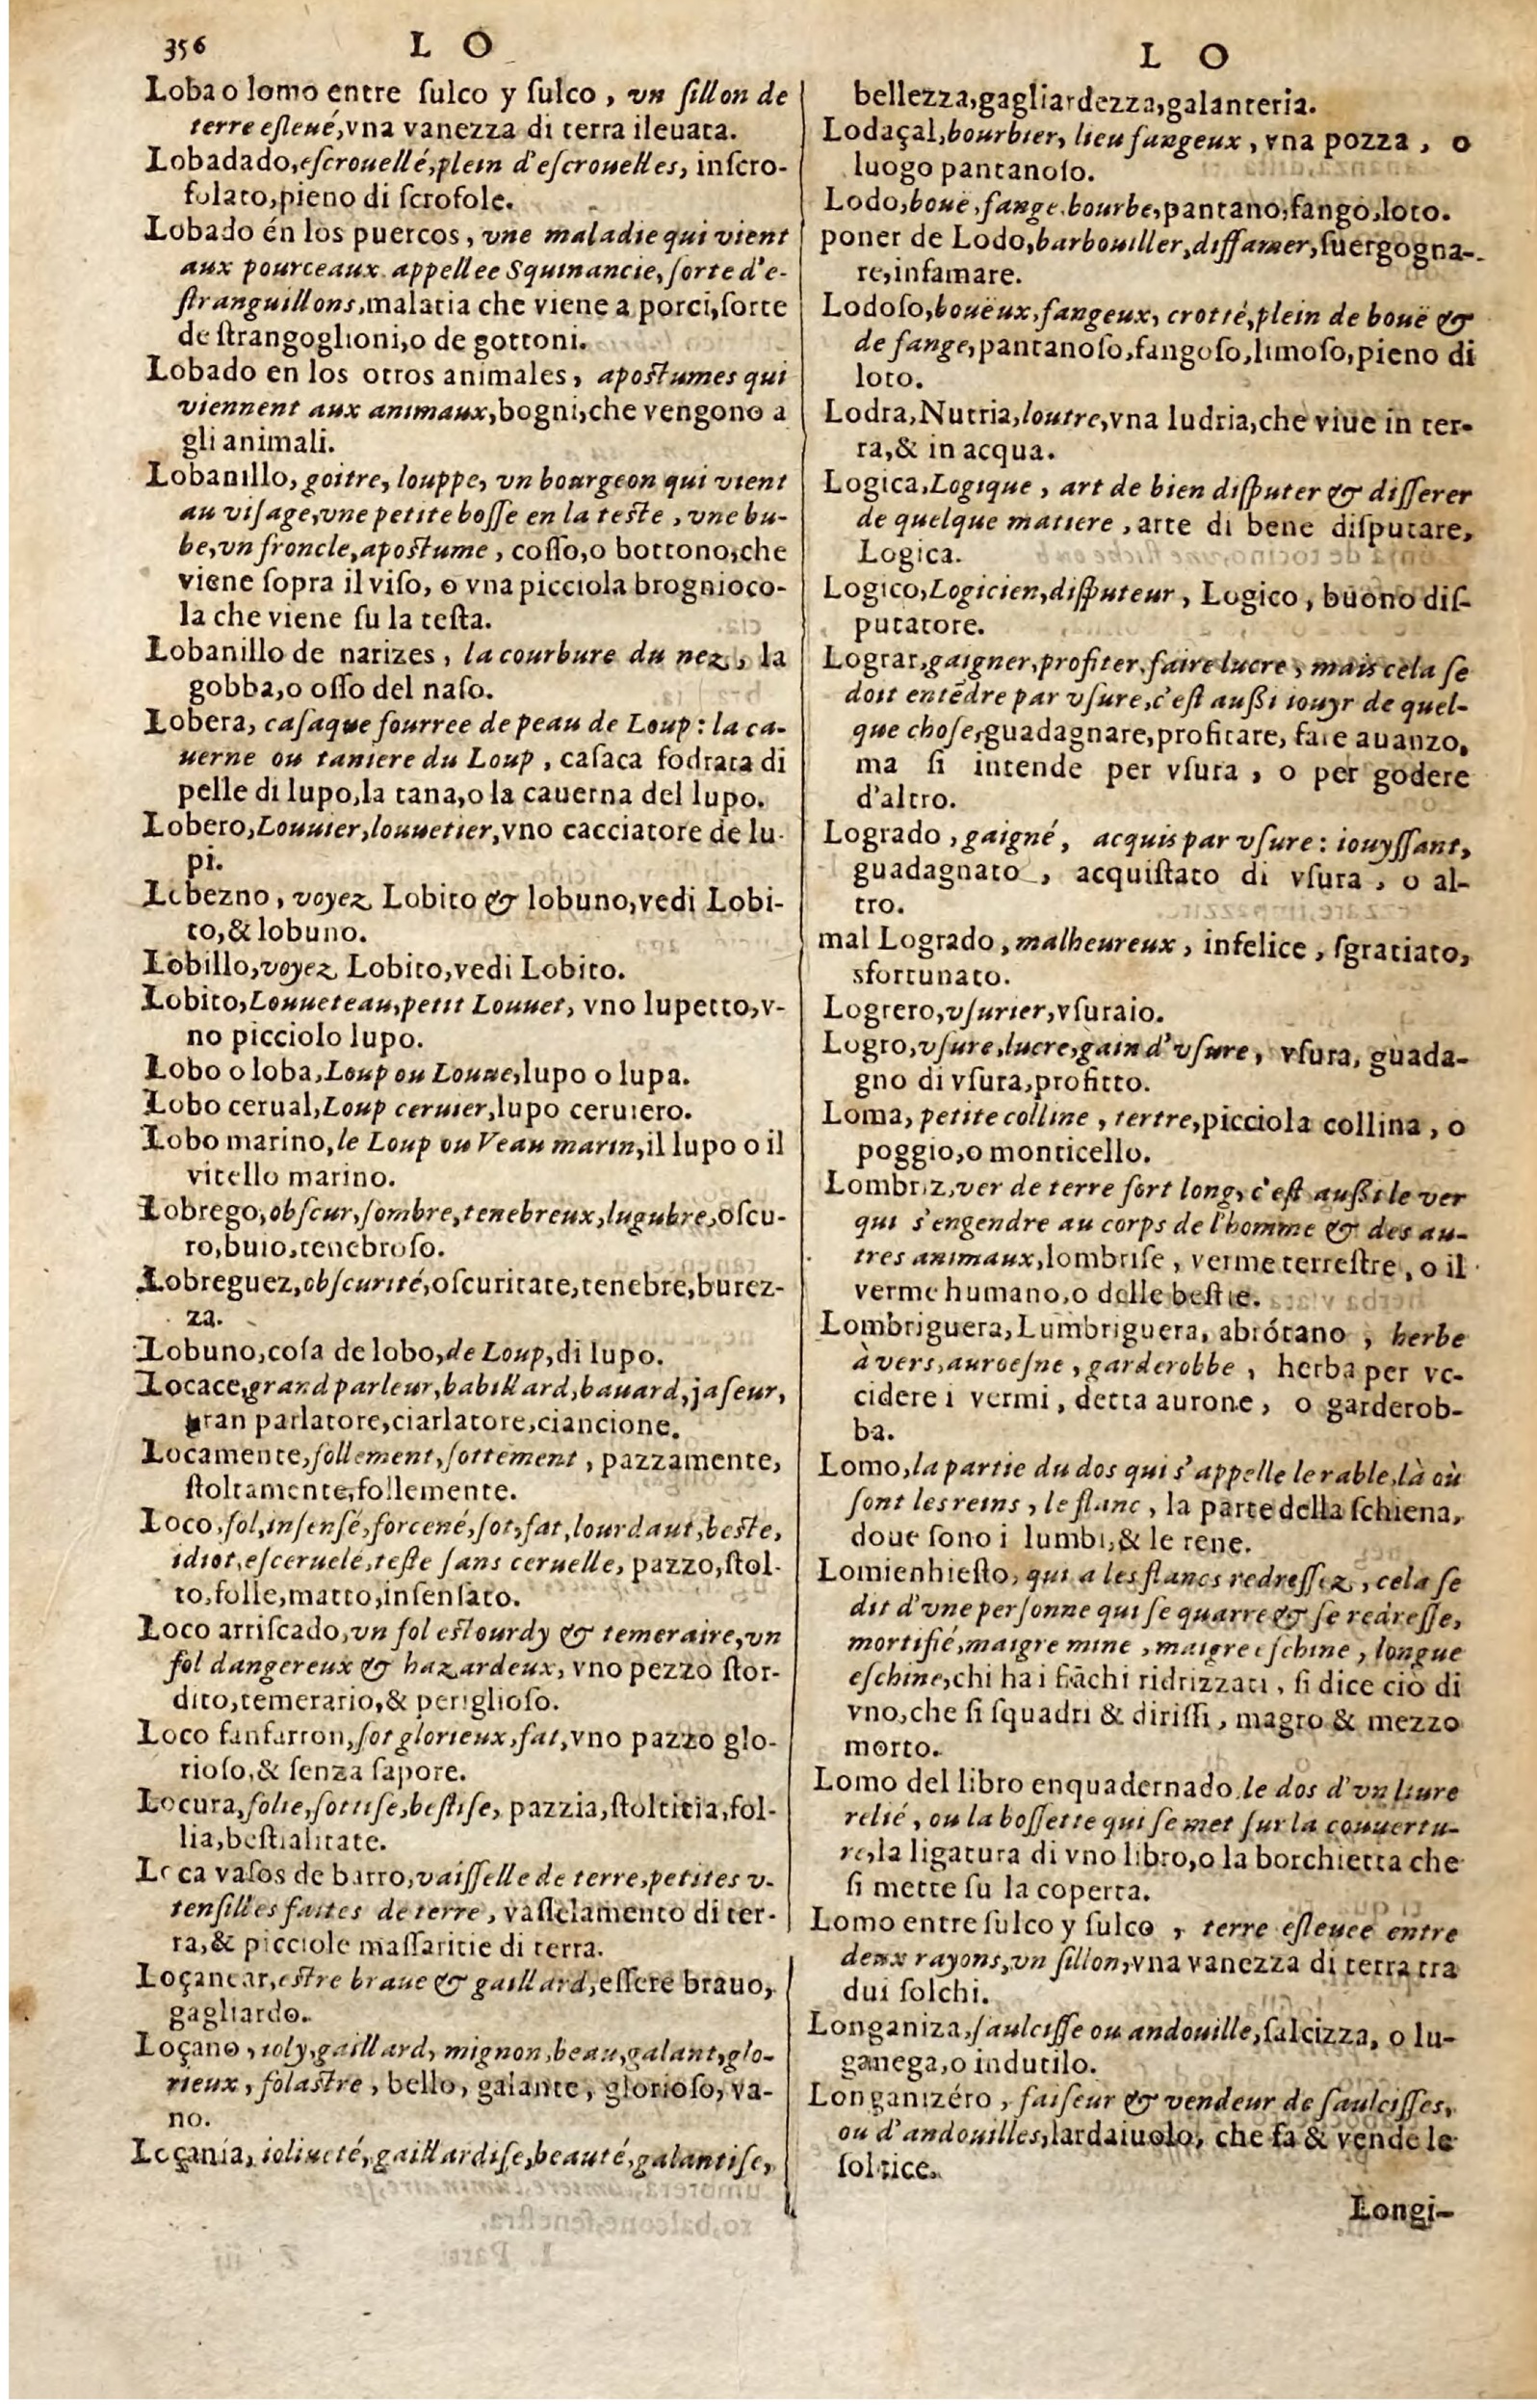 356 L O
Loba o lomo entre ſulco y ſulco, vn ſillon de
terre eſleué, vna vanezza di terra ileuata.
Lobadado, eſcrouellé, plein d'eſcrouelles, inſcro-
folato, pieno di ſcrofole.
Lobado én los puercos, vne maladie qui vient
aux pourceaux appellee Squinancie, ſorte d'e-
ſtranguillons, malatia che viene a porci, ſorte
de ſtrangoglioni, o de gottoni.
Lobado en los otros animales, apoſtumes qui
viennent aux animaux, bogni, che vengono a
gli animali.
Lobanillo, goitre, louppe, vn bourgeon qui vient
au viſage, vne petite boſſe en la teſte, vne bu-
be, vn froncle, apoſtume, coſſo, o bottono, che
viene ſopra il viſo, o vna picciola brognioco-
la che viene ſu la teſta.
Lobanillo de narizes, la courbure du nez, la
gobba, o oſſo del naſo.
Lobera, caſaque fourree de peau de Loup: la ca-
uerne ou taniere du Loup, caſaca fodrata di
pelle di lupo, la tana, o la cauerna del lupo.
Lobero, Louuier, louuetier, vno cacciatore de lu-
pi.
Lobezno, voyez Lobito & lobuno, vedi Lobi-
to, & lobuno.
Lobillo, voyez Lobito, vedi Lobito.
Lobito, Louueteau, petit Louuet, vno lupetto, v-
no picciolo lupo.
Lobo o loba, Loup ou Louue, lupo o lupa.
Lobo cerual, Loup ceruier, lupo ceruiero.
Lobo marino, le Loup ou Veau marin, il lupo o il
vitello marino.
Lobrego, obſcur, ſombre, tenebreux, lugubre, oſcu-
ro, buio, tenebroſo.
Lobreguez, obſcurité, oſcuritate, tenebre, burez-
za.
Lobuno, coſa de lobo, de Loup, di lupo.
Locace, grand parleur, babillard, bauard, jaſeur,
gran parlatore, ciarlatore, ciancione.
Locamente, follement, ſottement, pazzamente,
ſtoltamente, follemente.
Loco, fol, inſenſé, forcené, ſot, fat, lourdaut, beſte,
idiot, eſceruelé, teſte ſans ceruelle, pazzo, ſtol-
to, folle, matto, inſenſato.
Loco arriſcado, vn fol eſtourdy & temeraire, vn
fol dangereux & hazardeux, vno pezzo ſtor-
dito, temerario, & periglioſo.
Loco fanfarron, ſot glorieux, fat, vno pazzo glo-
rioſo, & ſenza ſapore.
Locura, folie, ſottiſe, beſtiſe, pazzia, ſtoltitia, fol-
lia, beſtialitate.
Loca vaſos de barro, vaiſſelle de terre, petites v-
tenſilles faites de terre, vaſſelamento di ter-
ra, & picciole maſſaritie di terra.
Loçanear, eſtre braue & gaillard, eſſere brauo,
gagliardo.
Loçano, ioly, gaillard, mignon, beau, galant, glo-
rieux, folaſtre, bello, galante, glorioſo, va-
no.
Loçania, ioliueté, gaillardiſe, beauté, galantiſe,
L O
bellezza, gagliardezza, galanteria.
Lodaçal, bourbier, lieu fangeux, vna pozza, o
luogo pantanoſo.
Lodo, boue, fange, bourbe, pantano, fango, loto.
poner de Lodo, barbouiller, diffamer, ſuergogna-
re, infamare.
Lodoſo, boueux, fangeux, crotté, plein de bouë &
de fange, pantanoſo, fangoſo, limoſo, pieno di
loto.
Lodra, Nutria, loutre, vna ludria, che viue in ter-
ra, & in acqua.
Logica, Logique, art de bien diſputer & differer
de quelque matiere, arte di bene diſputare,
Logica.
Logico, Logicien, diſputeur, Logico, buono diſ-
putatore.
Lograr, gaigner, profiter, faire lucre, mais cela ſe
doit entẽdre par vſure, c'eſt auſſi iouyr de quel-
que choſe, guadagnare, profitare, fare auanzo,
ma ſi intende per vſura, o per godere
d'altro.
Logrado, gaigné, acquis par vſure: iouyſſant,
guadagnato, acquiſtato di vſura, o al-
tro.
mal Logrado, malheureux, infelice, ſgratiato,
sfortunato.
Logrero, vſurier, vſuraio.
Logro, vſure, lucre, gain d'vſure, vſura, guada-
gno di vſura, profitto.
Loma, petite colline, tertre, picciola collina, o
poggio, o monticello.
Lombriz, ver de terre fort long, c'eſt auſſi le ver
qui s'engendre au corps de l'homme & des au-
tres animaux, lombriſe, verme terreſtre, o il
verme humano, o delle beſtie.
Lombriguera, Lumbriguera, abrótano, herbe
à vers, auroeſne, garderobbe, herba per vc-
cidere i vermi, detta aurone, o garderob-
ba.
Lomo, la partie du dos qui s'appelle le rable, là où
ſont les reins, le flanc, la parte della ſchiena,
doue ſono i lumbi, & le rene.
Lomienhieſto, qui a les flancs redreſſez, cela ſe
dit d'vne perſonne qui ſe quarre & ſe redreſſe,
mortifié, maigre mine, maigre eſchine, longue
eſchine, chi ha i fiãchi ridrizzati, ſi dice ciò di
vno, che ſi ſquadri & diriſſi, magro & mezzo
morto.
Lomo del libro enquadernado, le dos d'vn liure
relié, ou la boſſette qui ſe met ſur la couuertu-
re, la ligatura di vno libro, o la borchietta che
ſi mette ſu la coperta.
Lomo entre ſulco y ſulco, terre eſleuee entre
deux rayons, vn ſillon, vna vanezza di terra tra
dui ſolchi.
Longaniza, ſaulciſſe ou andouille, ſalcizza, o lu-
ganega, o indutilo.
Longanizéro, faiſeur & vendeur de ſaulciſſes,
ou d'andouilles, lardaiuolo, che fa & vende le
Longi-